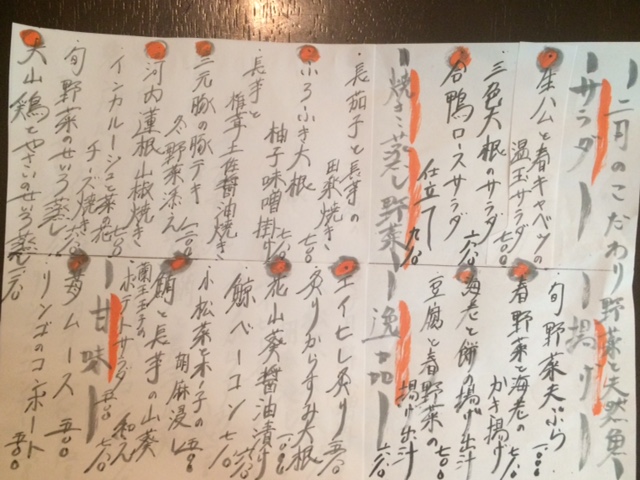 二月のこだわり野菜と天然魚
サラダ
生ハムと春キャベツの
温玉サラダ 七〇〇
三色大根のサラダ 六八〇
合鴨ロースサラダ
仕立て 九八〇
焼き・蒸し野菜
長茄子と長芋の
田楽焼き
ふろふき大根 七〇〇
柚子味噌掛け 七八〇
長芋と
椎茸土佐醤油焼き
三元豚の豚テキ
冬野菜添え
河内蓮根山椒焼き
インカルージュと菜花
チーズ焼き
旬野菜のせいろ蒸し
大山鶏とやさいのせいろ蒸し
揚げ
旬野菜天ぷら
春野菜と海老の
かき揚げ 七八〇
海老と餅の揚げ出汁
豆腐と春野菜の 七〇〇
揚げ出汁 六八〇
逸品
エイヒレ炙り 五八〇
炙りからすみ大根
花山葵醤油漬け
鯨ベーコン
小松菜とホタテの
胡麻浸し 五〇〇
鮪と長芋の山葵
和え
蘭王玉子の
ポテトサラダ 五八〇
甘味
苺ムース 五〇〇
リンゴのコンポート 五〇〇